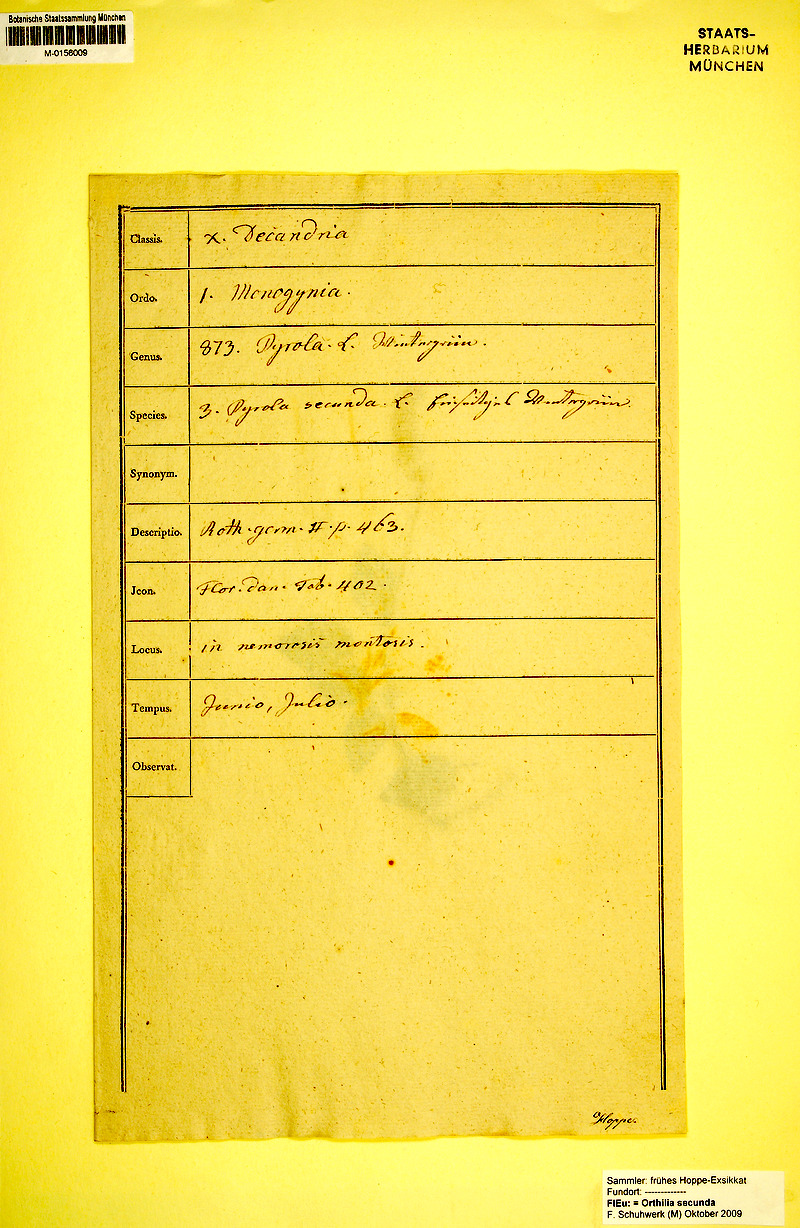 Botanische Staatssammlung München
M-0156009
STAATS-
HERBARIUM
MÜNCHEN
Classis. X. Decandria
Ordo. 1. Monogynia.
Genus. 873. Pyrola. L. Wintergrün.
Species. 3. Pyrola secunda. L. Wintergrün
Synonym.
Descriptio. Roth. germ. II. p. 463.
Jcon. Flor. dan. Tab. 402.
Locus. in nemorosis montosis.
Tempus. Junio, Julio.
Observat.
Hoppe.
Sammler: frühes Hoppe-Exsikkat
Fundort: -------------
FlEu: = Orthilia secunda
F. Schuhwerk (M) Oktober 2009